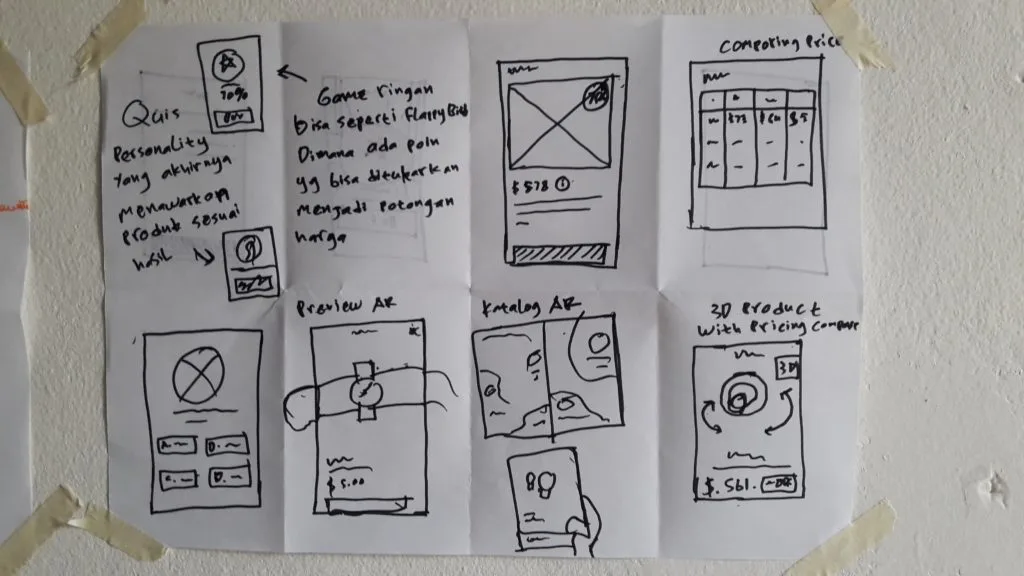 Quis
Personality
yang akhirnya
menawarkan
produk sesuai
hasil
70%
BUY
Game ringan
bisa seperti Flappy Bird
Dimana ada poin
yg bisa ditukarkan
menjadi potongan
harga
$ 578
Comparing Price
$73
$60
$5
A.
B.
C.
D.
Preview AR
$ 5.00
Katalog AR
3D Product
With Pricing Compare
3D
$. 561.